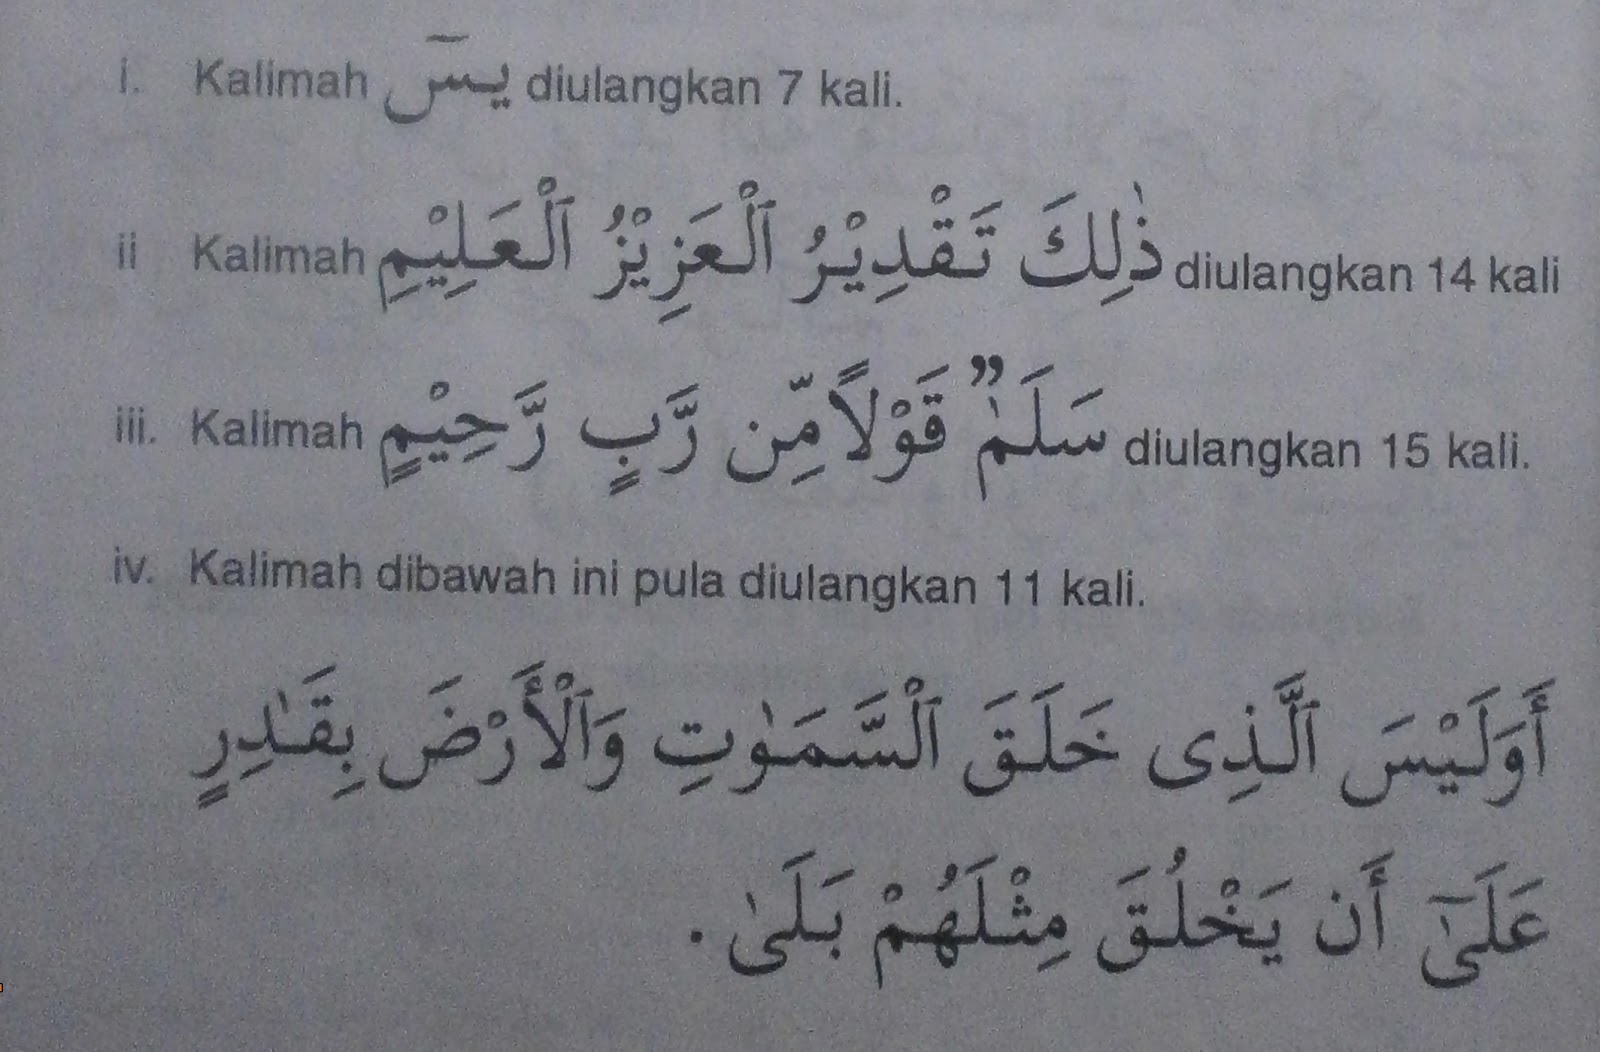 i. Kalimah يسٓ diulangkan 7 kali.
ii Kalimah ذٰلِكَ تَقْدِيْرُ ٱلْعَزِيْزُ ٱلْعَلِيْمِ diulangkan 14 kali
iii. Kalimah سَلَـٰمٌ قَوْلاً مِّن رَّبٍ رَّحِيْمٍ diulangkan 15 kali.
iv. Kalimah dibawah ini pula diulangkan 11 kali.
أَوَلَيْسَ ٱلَّذِى خَلَقَ ٱلْسَّمَـوٰتِ وَٱلْأَرْضَ بِقَـٰدِرٍ
عَلَىٰٓ أَن يَخْلُقَ مِثْلَهُمْ بَلَىٰ .